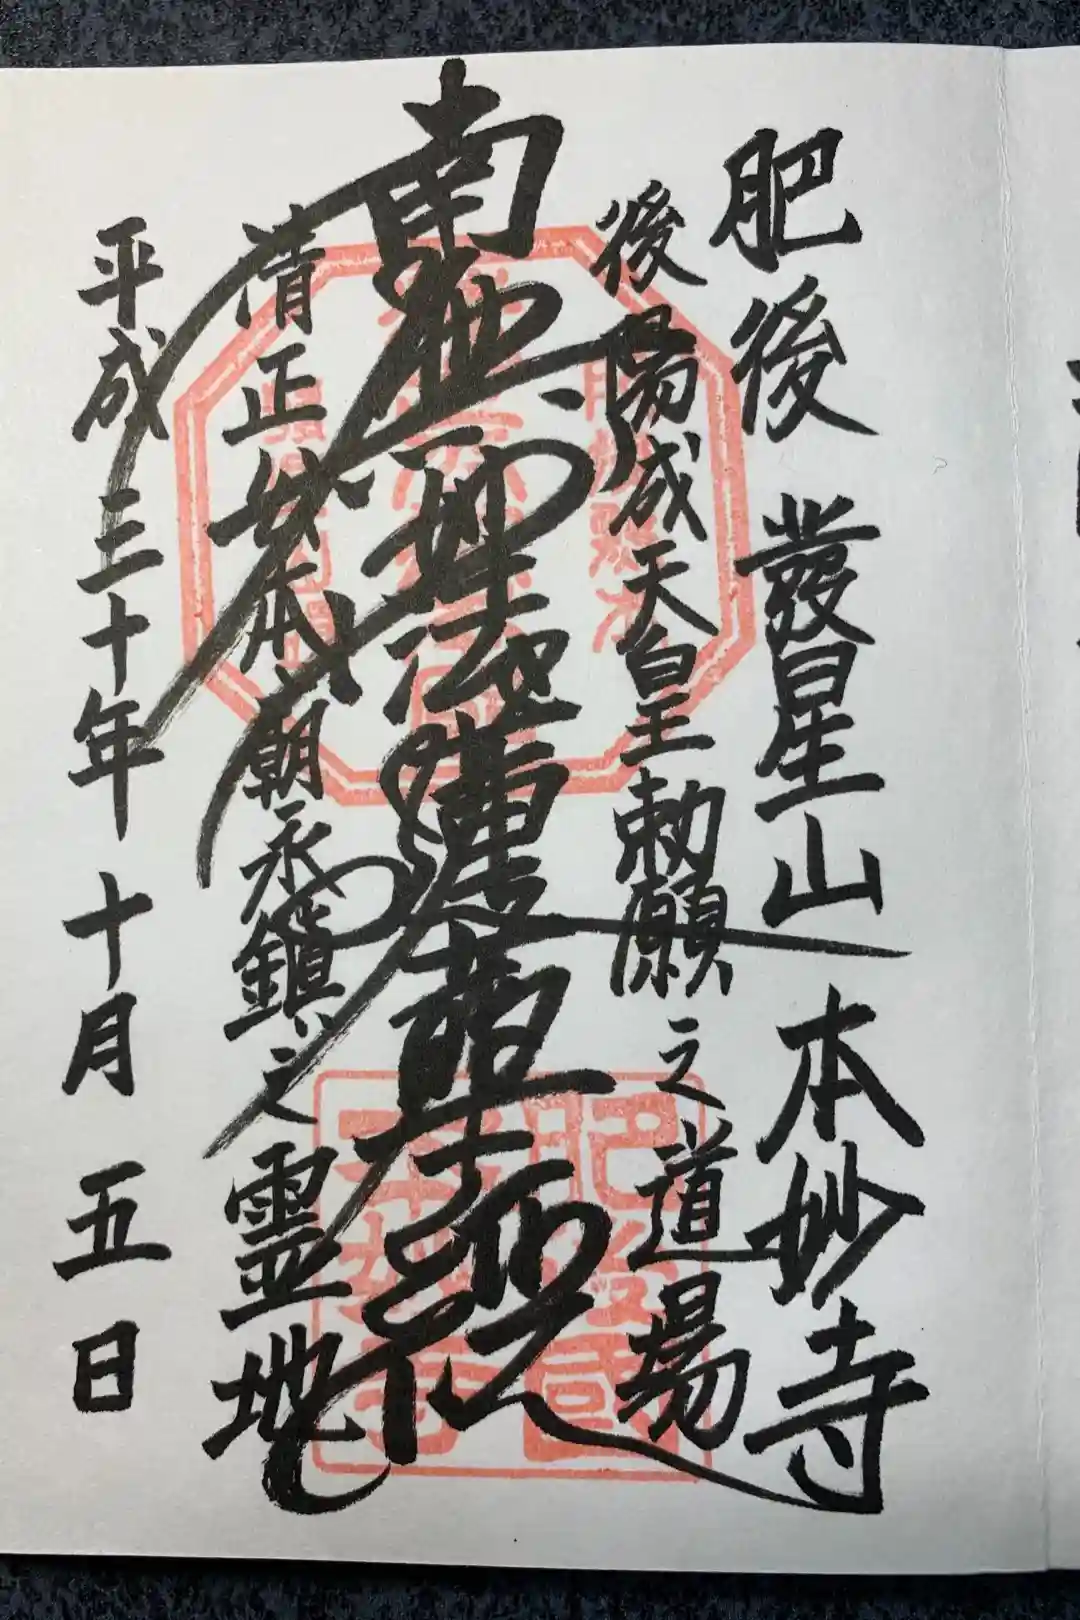 肥後 發星山 本妙寺
後陽成天皇勅願之道場
南無妙法蓮華経
清正公本廟永鎮之霊地
平成三十年 十月 五日